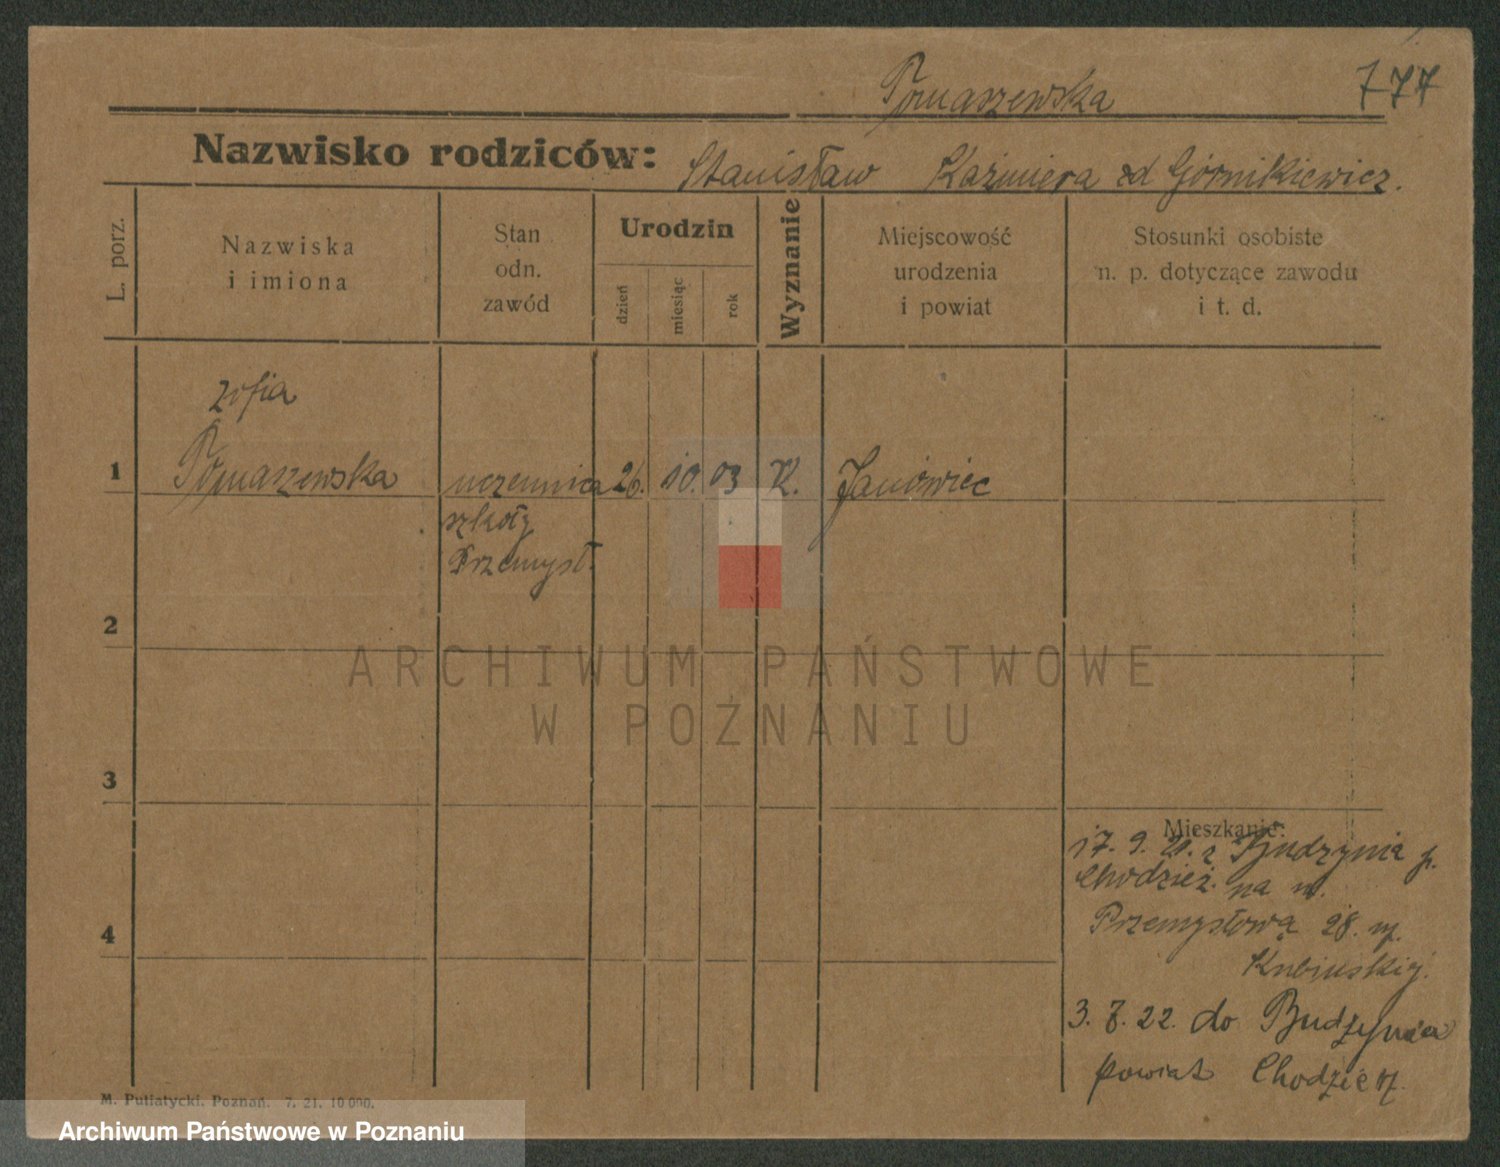 Tomaszewska 777
Nazwisko rodziców: Stanisław Kaźmiera od Górnikiewicz.
L. porz.
Nazwiska i imiona
Stan odn. zawód
Urodzin
dzień
miesiąc
rok
Wyznanie
Miejscowość urodzenia i powiat
Stosunki osobiste n. p. dotyczące zawodu i t. d.
Zofia
1 Tomaszewska uczennica 26. 10. 03 K. Janówiec
szkoły
Przemysł.
2
ARCHIWUM PAŃSTWOWE
W POZNANIU
3
Mieszkanie:
17. 9. 21. z Budzynia p.
Chodzież. na u.
Przemysłową 28. u p.
4
3. 7. 22. do Budzynia
powiat Chodzież.
M. Putiatycki. Poznań. 7. 21. 10 000.
Archiwum Państwowe w Poznaniu